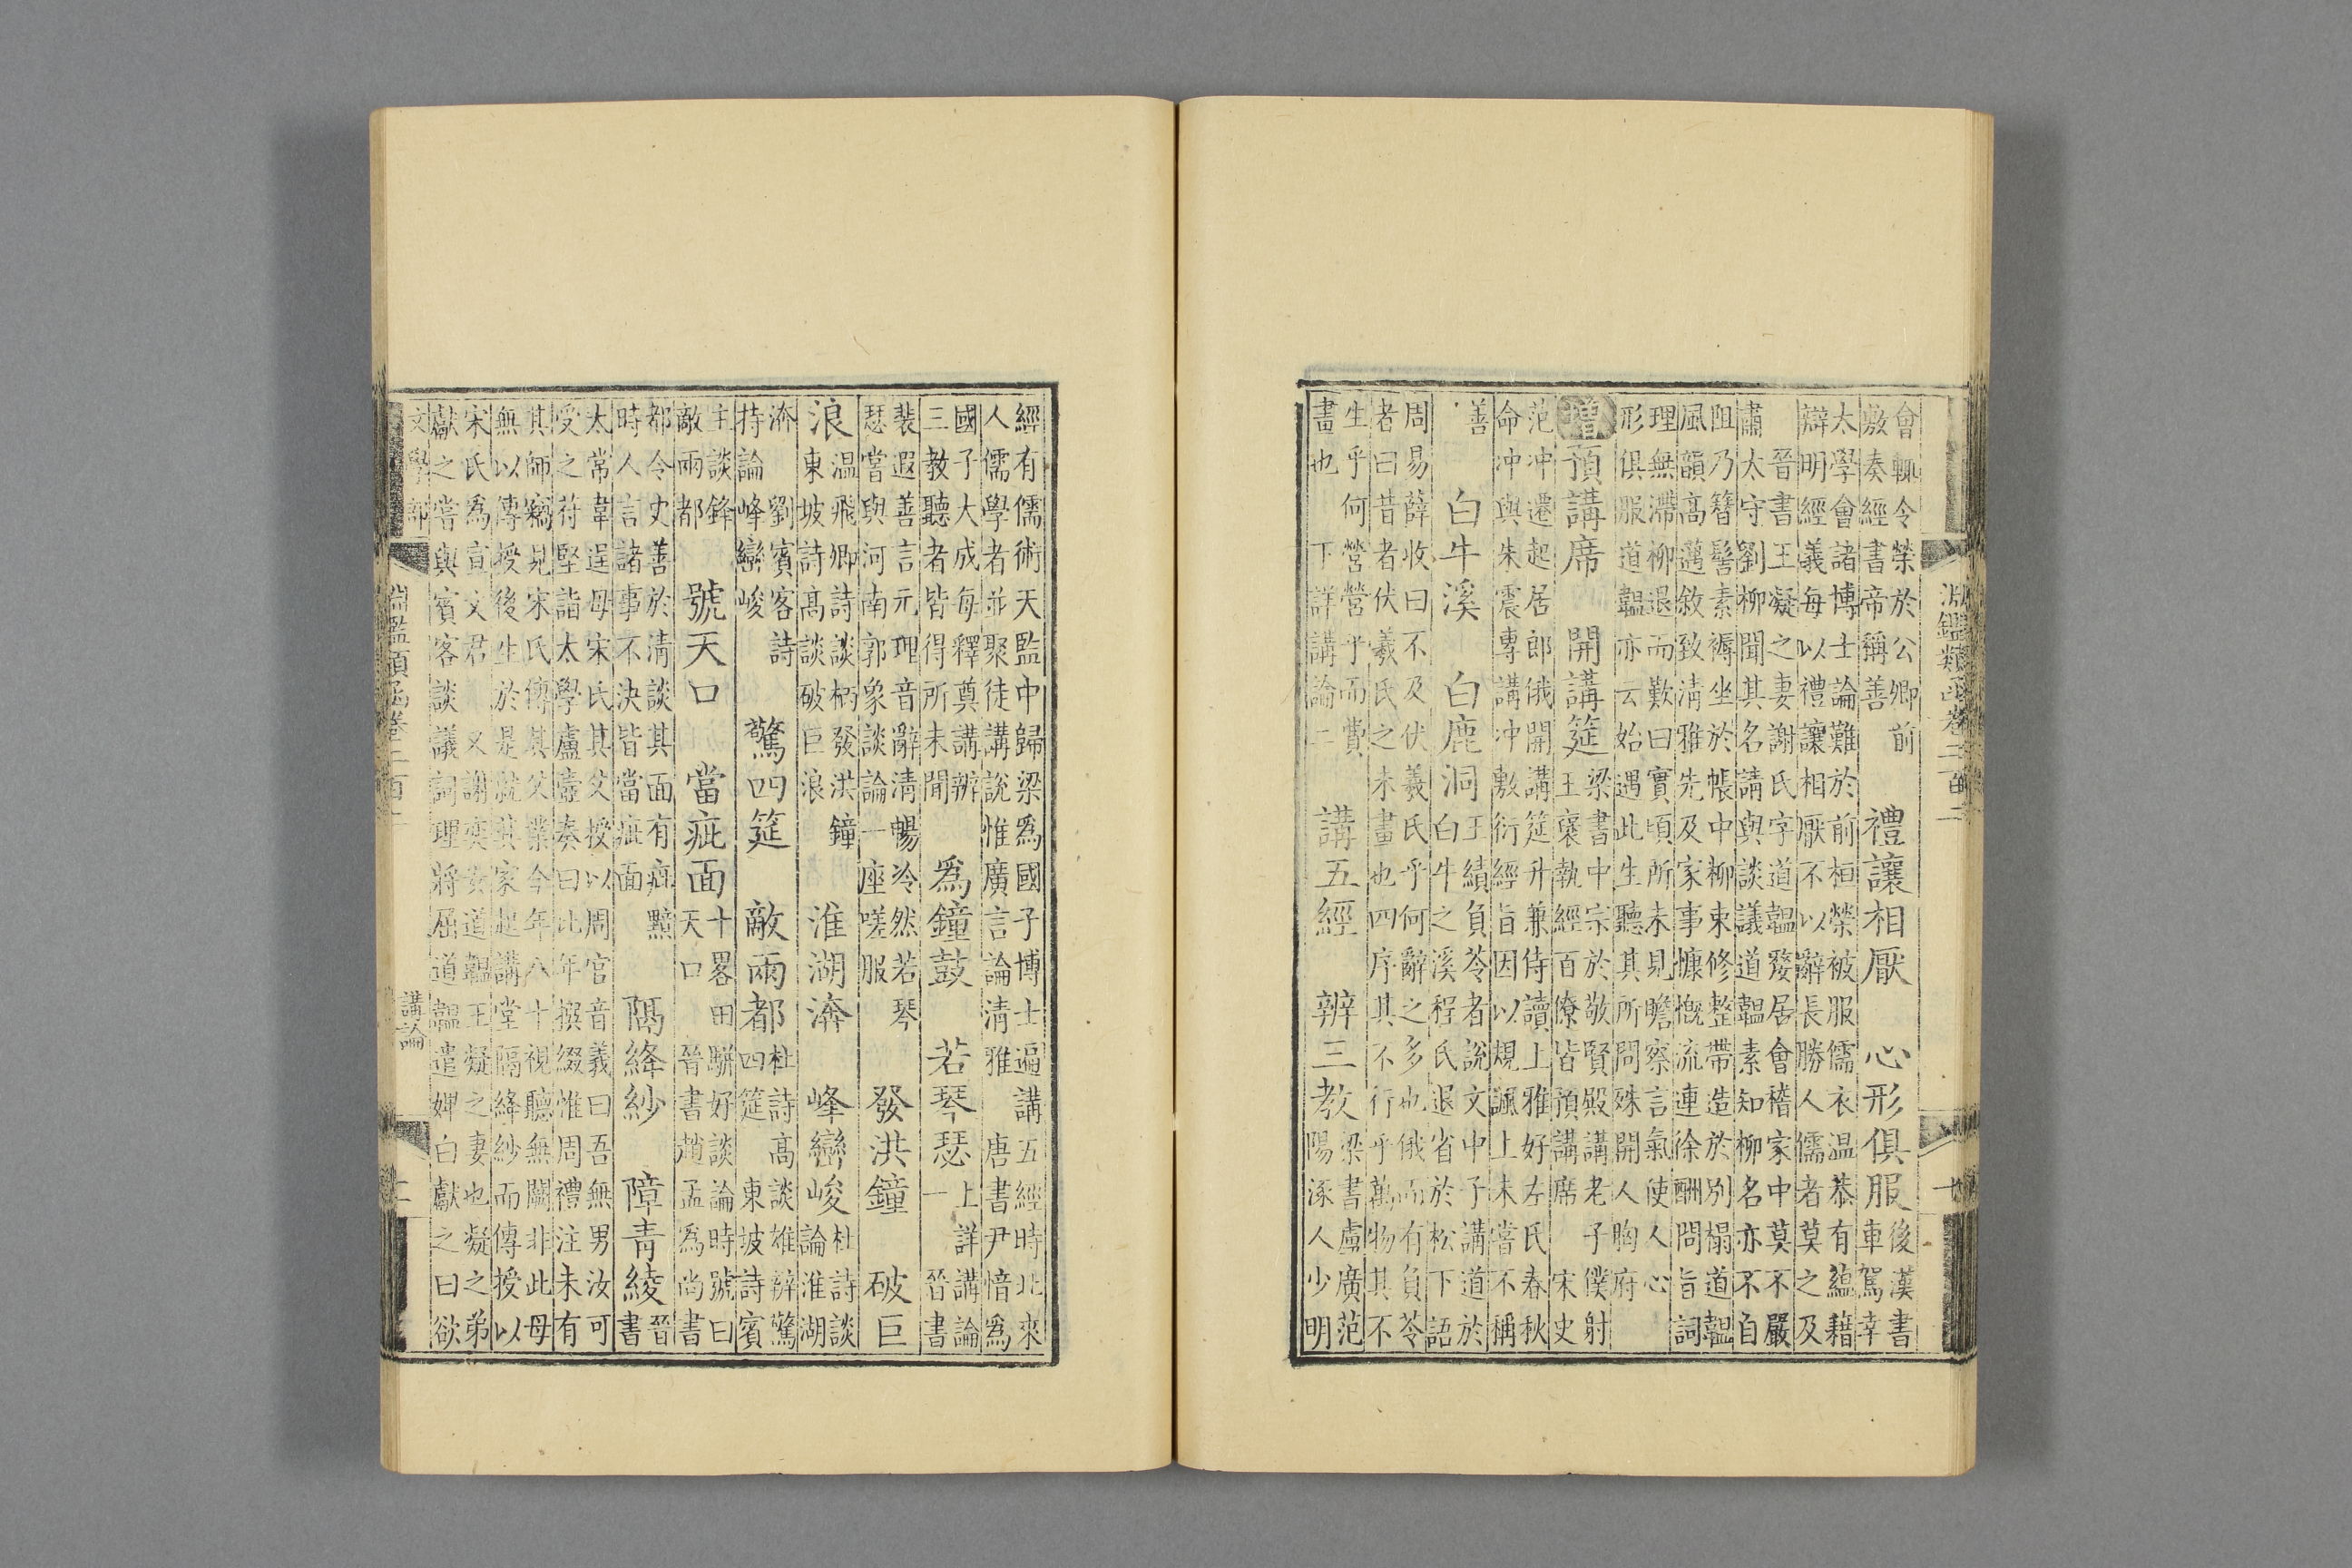 淵鑑類函卷二百二
會輒令榮於公卿前
敷奏經書帝稱善
禮讓相厭　心形俱服
後漢書
車駕幸
太學會諸博士論難於前桓榮被服儒衣温恭有蘊藉
辯明經義每以禮讓相厭不以辭長勝人儒者莫之及
晉書王凝之妻謝氏字道韞發居會稽家中莫不嚴
肅太守劉柳聞其名請與談議道韞素知柳名亦不自
阻乃簪髻素褥坐於帳中柳束修整帶造於別榻道韞
風韻髙邁敘致清雅先及家事慷慨流連徐酬問旨詞
理無滯柳退而歎曰實頃所未見瞻察言氣使人心
形俱服道韞亦云始遇此生聽其所問殊開人胸府
增　預講席　開講筵
梁書中宗於敬賢殿講老子僕射
王襃執經百僚皆預講席　宋史
范冲遷起居郎俄開講筵升兼侍讀上雅好左氏春秋
命冲與朱震專講冲敷衍經旨因以規諷上未嘗不稱
善
白牛溪　白鹿洞
王績負苓者說文中子講道於
白牛之溪程氏退省於松下語
周易薛收曰不及伏羲氏乎何辭之多也俄而有負苓
者曰昔者伏羲氏之未畫也四序其不行乎萬物其不
生乎何營營乎而費
畫也　下詳講論二
講五經　辨三教
梁書盧廣范
陽涿人少明
經有儒術天監中歸梁為國子博士遍講五經時北來
人儒學者並聚徒講說惟廣言論清雅　唐書尹愔為
國子大成每釋奠講辨
三教聽者皆得所未聞
為鐘鼓　若琴瑟
上詳講論
一　晉書
裴遐善言元理音辭清暢泠然若琴
瑟嘗與河南郭象談論一座嗟服
發洪鐘　破巨
浪
温飛卿詩談柄發洪鐘
東坡詩髙談破巨浪
淮湖渀　峰巒峻
杜詩談
論淮湖
渀　劉賓客詩
持論峰巒峻
驚四筵　敵兩都
杜詩髙談雄辨驚
四筵　東坡詩賓
主談鋒
敵兩都
號天口　當疵面
十畧田駢好談論時號曰
天口　晉書趙孟為尚書
都令史善於清談其面有疵黯
時人言諸事不決皆當疵面
隔絳紗　障青綾
晉
書
太常韋逞母宋氏其父授以周官音義曰吾無男汝可
受之苻堅詣太學盧壼奏曰比年撰綴惟周禮注未有
其師竊見宋氏傳其父業今年八十視聽無闕非此母
無以傳授後生於是就其家起講堂隔絳紗而傳授以
宋氏為宣文君　又謝奕女道韞王凝之妻也凝之弟
獻之嘗與賓客談議詞理將屈道韞遣婢白獻之曰欲
文學部　淵鑑類函卷二百二　講論